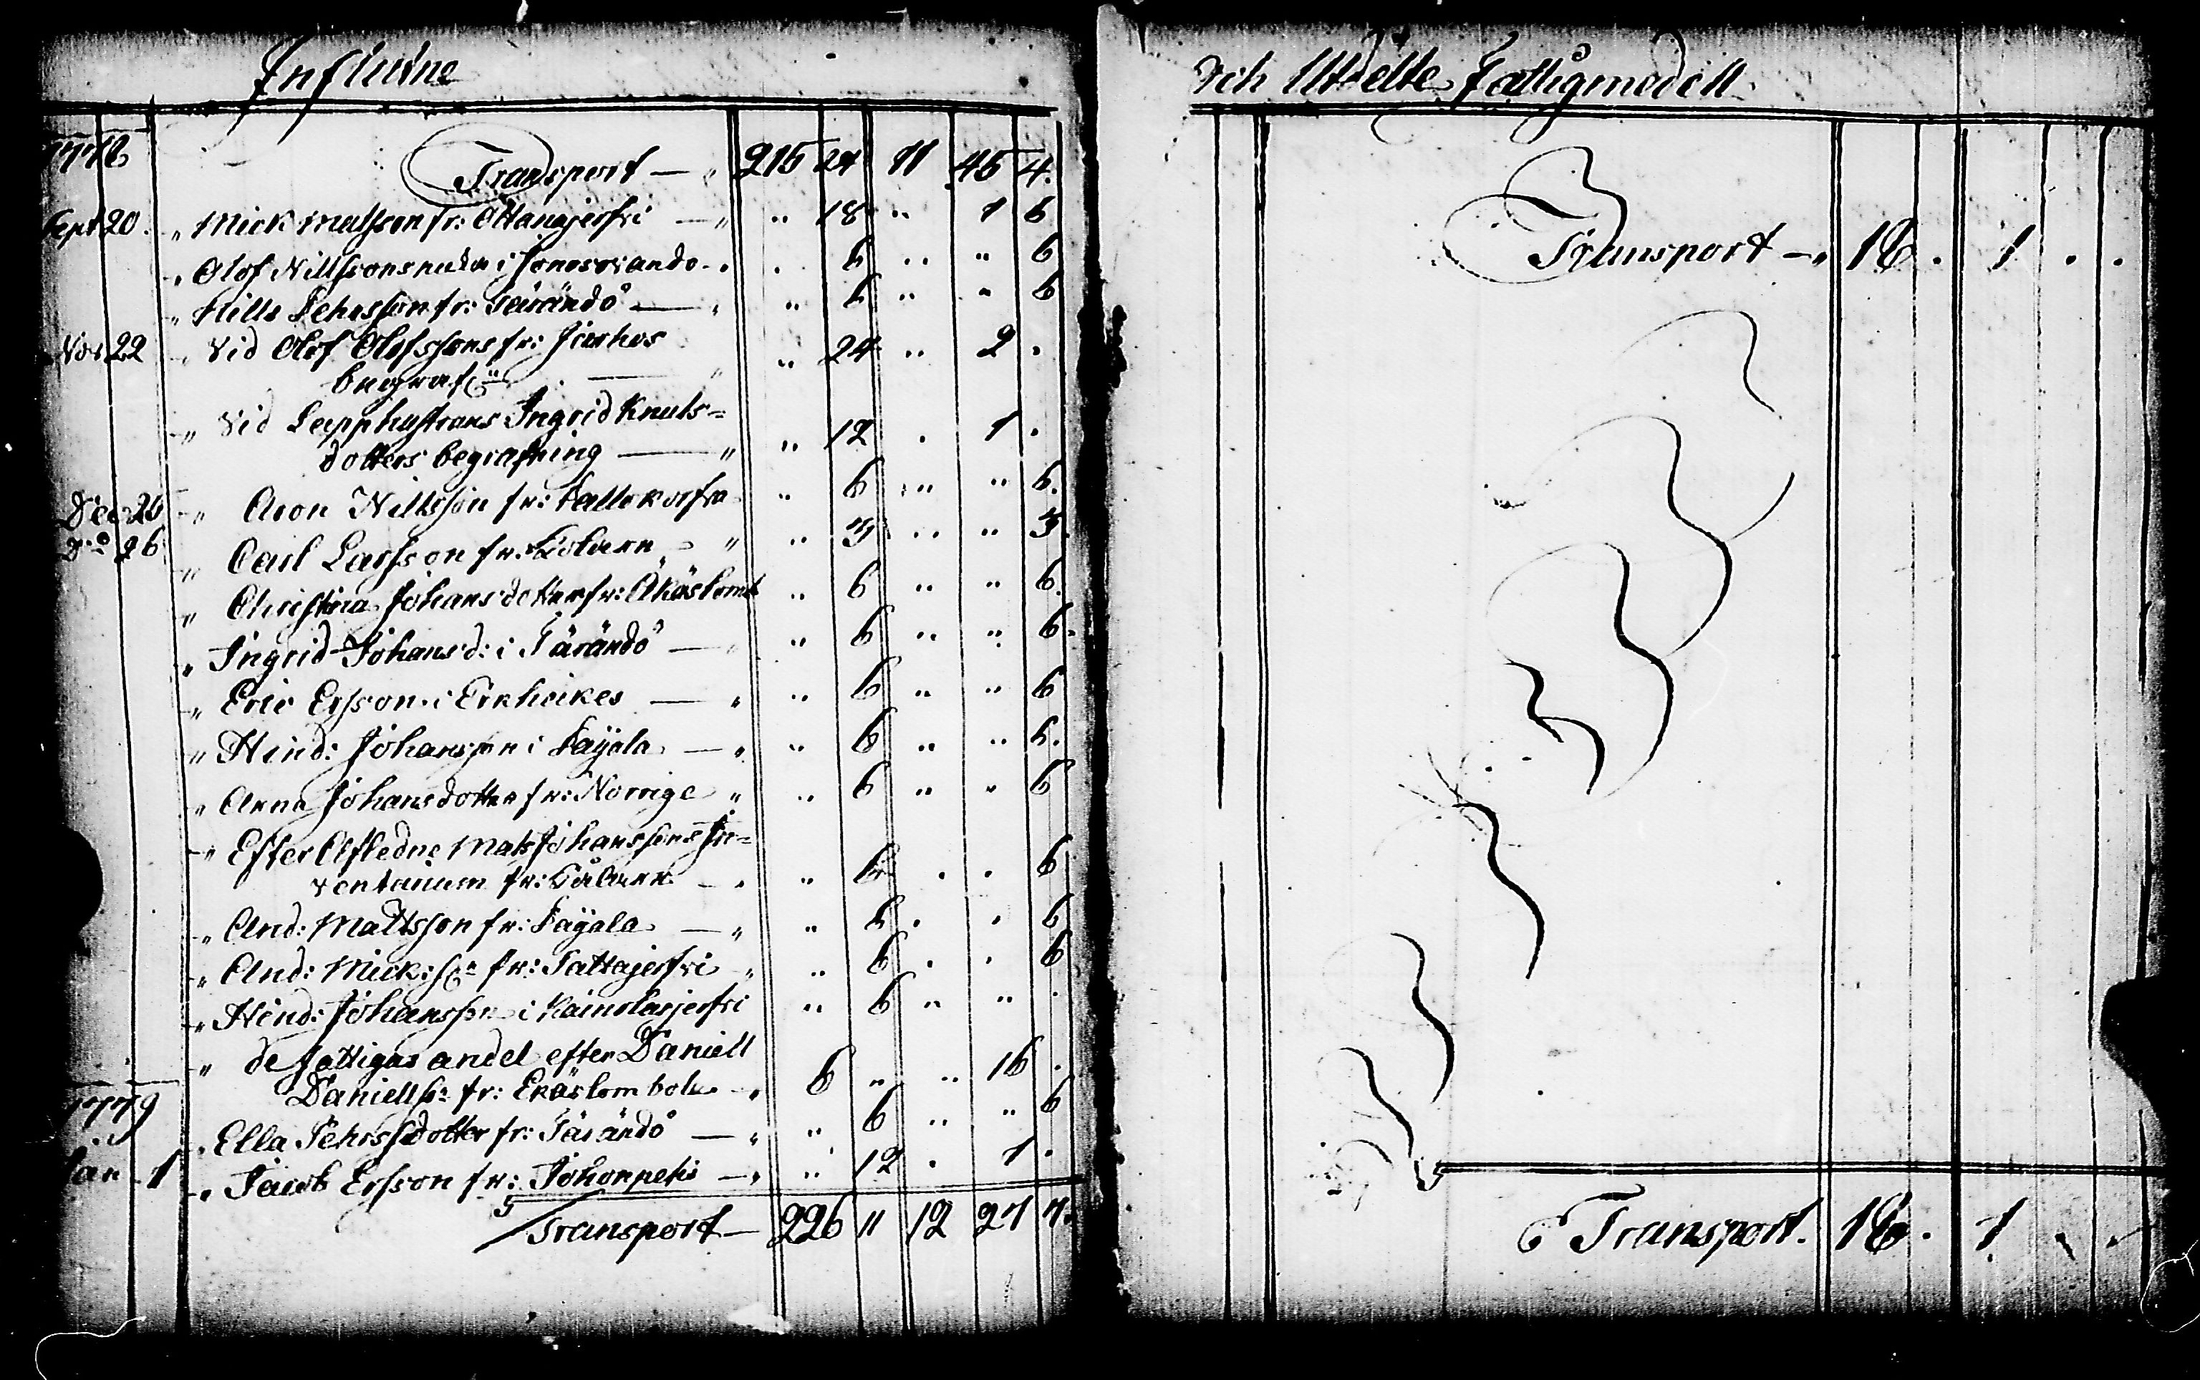 Influtne
1778 Transport — " 215 24 11 45 4.
Sept 20. " Mick Matsson fr: Ottanajerfvi — " " 18 " 1 6
" Olof Nillssons i Junosvando " . 6 " " 6
" Nills Pehrsson fr: Tärändö — " " 6 " " 6
Nov 22 " vid Olof Olofssons fr: Juhos " 24 " 2 .
begrafn: — "
" vid Lapphustrans Ingrid Knuts=
dotters begrafning — " " 12 . 1 .
Dec 26 " Aron Nillsson fr: " 6 " " 6.
Do 26 " Carl Larsson fr: — " " 3 " " 3.
" Christina Johansdotter fr: Äkäslomb " 6 " " 6.
" Ingrid Johansd: i Tärändö — " " 6 " " 6.
" Eric Ersson i Erkheikes — " " 6 " " 6
" Hind: Johansson i Pajala — " " 6 " " 6.
" Anna Johansdotter fr: Norrige " " 6 " " 6
" Efter Afledne Mats Johanssons In=
ventarium fr: — " " 6 . . 6
" And: Mattsson fr: Pajala — " " 6 . . 6
" And: Micks: fr: Sattajerfvi " " 6 . . 6
" Hind: Johansson i Kainolasjerfvi " 6 " " .
" de fattigas andel efter Daniell
Daniellss: fr: Äkäslombolo — " 6 " " 16 .
1779
" Ella Pehrsdotter fr: Tärändö — " " 6 " " 6
Jan 1 " Jacob Ersson fr: Johonpetis — " " 12 . 1 .
Transport — 226 11 12 27 7.
och Utdelte Fattigmedell
Transport — " 18 . 1 . .
Transport. 18 . 1 . .